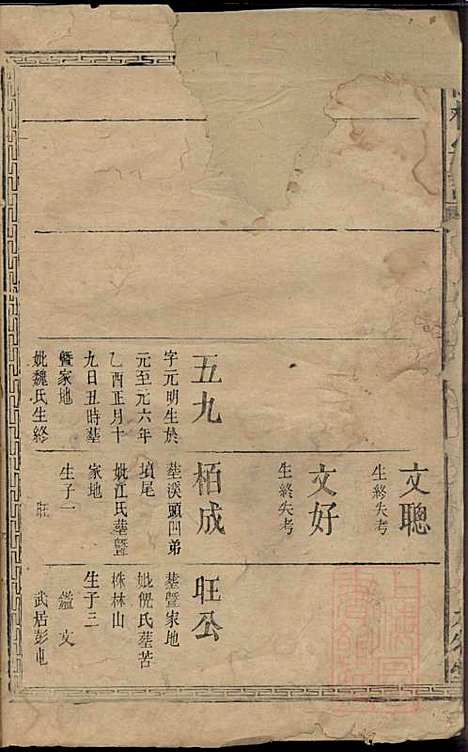 五九
字元明生於
元至元六年
乙酉正月十
九日丑時葬
暨家地
妣魏氏生終
文聰
生終失考
文好
生終失考
栢成
葬溪頭四弟
墳尾
妣江氏葬暨
家地
生子一
旺
旺公
葬暨家地
妣倪氏葬苦
株林山
生子三
鑑 文
武居彭屯